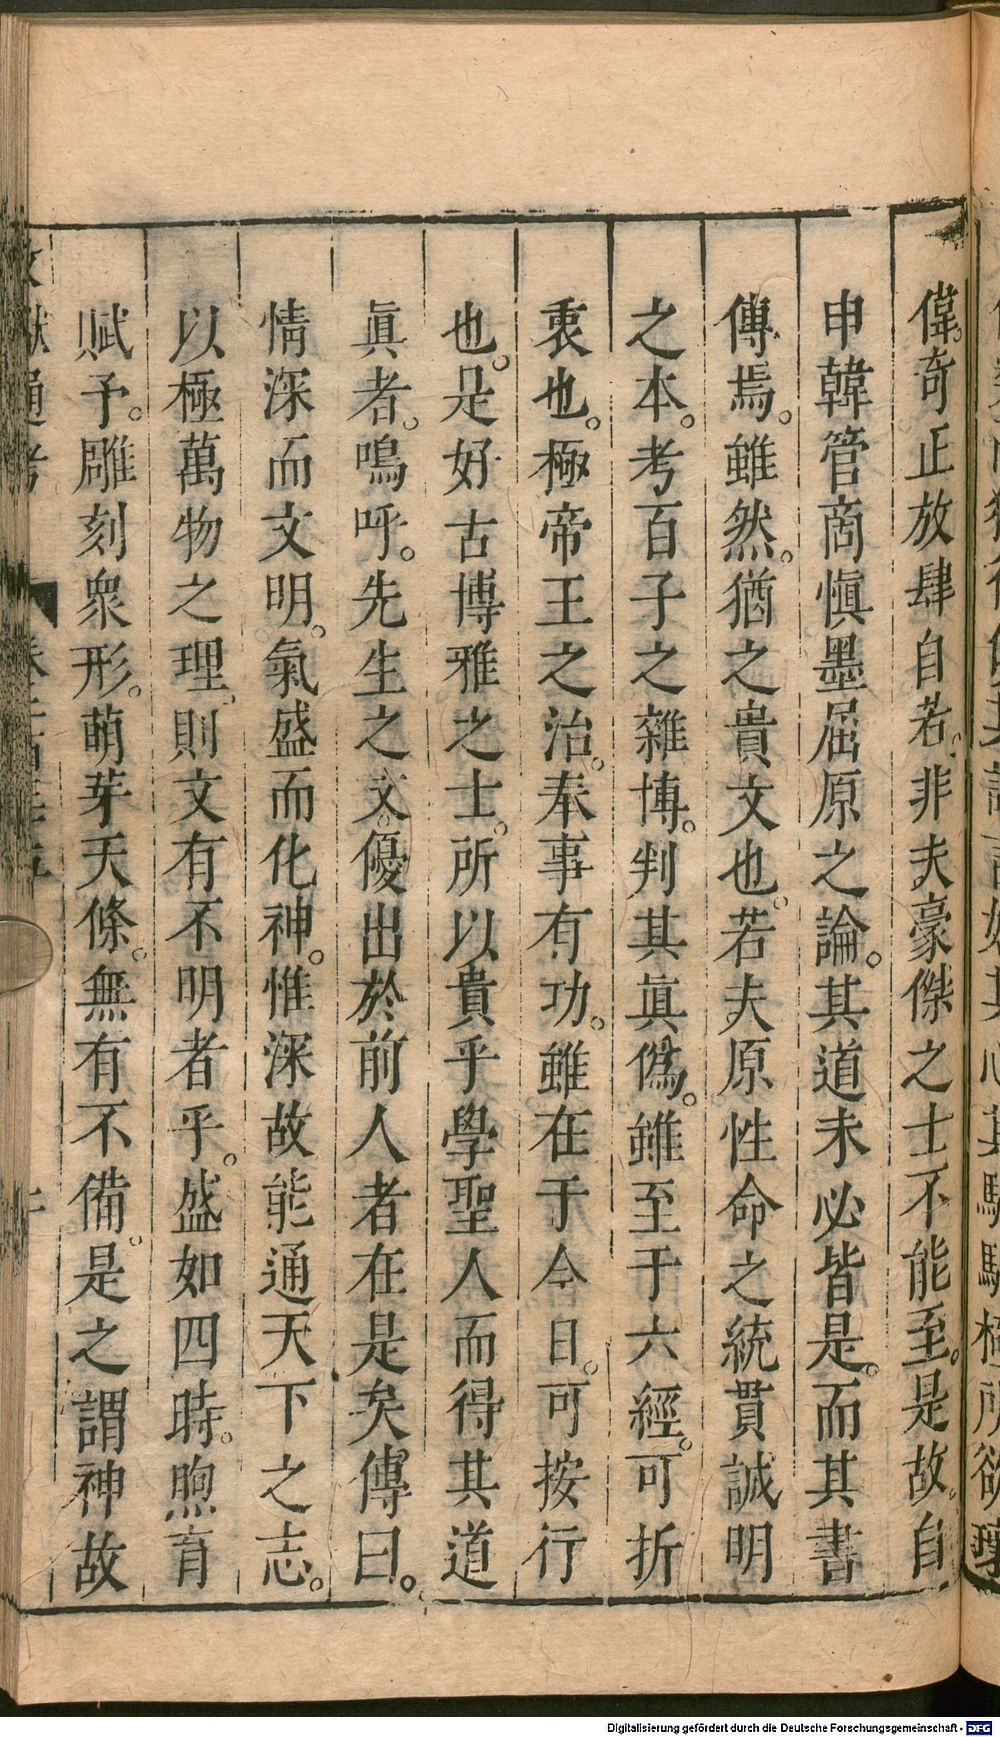 偉。奇正放肆自若。非夫豪傑之士不能至。是故。自
申韓管商慎墨屈原之論。其道未必皆是。而其書
傳焉。雖然。猶之貴文也。若夫原性命之統貫誠明
之本。考百子之雜博。判其眞僞。雖至于六經。可折
衷也。極帝王之治。奉事有功。雖在于今日。可按行
也。是好古博雅之士。所以貴乎學聖人而得其道
眞者。嗚呼。先生之文。優出於前人者在是矣傳曰。
情深而文明。氣盛而化神。惟深故能通天下之志。
以極萬物之理。則文有不明者乎。盛如四時。煦育
賦予。雕刻衆形。萌芽天條。無有不備。是之謂神故
文獻通考
Digitalisierung gefördert durch die Deutsche Forschungsgemeinschaft - DFG